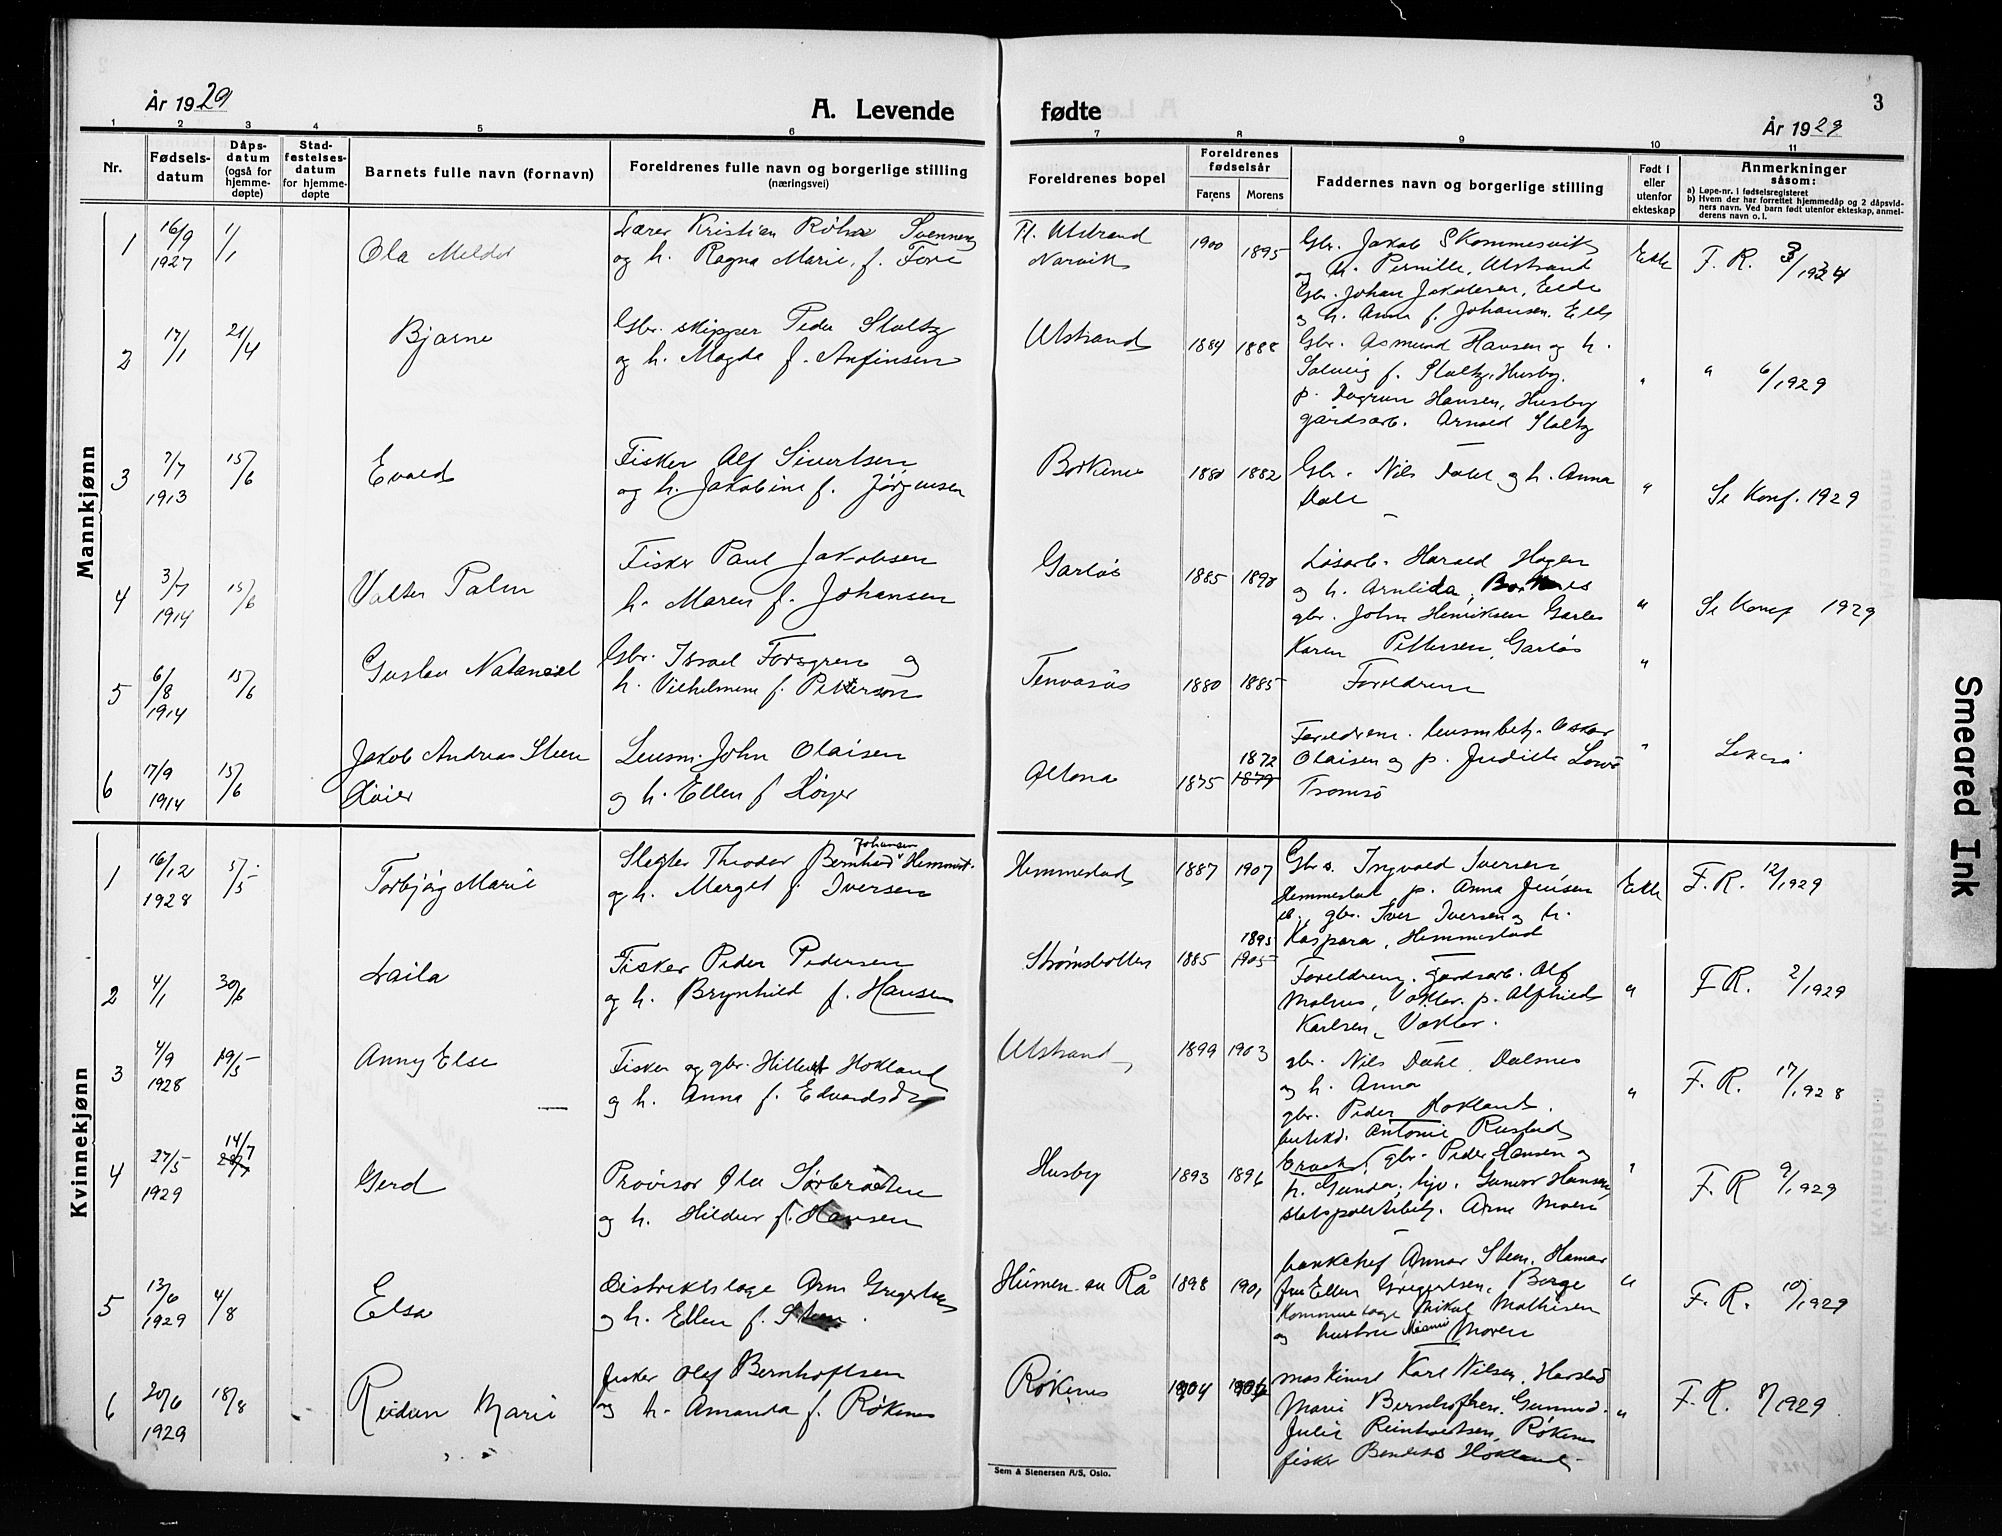 År 1929
A. Levende
fødte
3
År 1929
1 2 3 4 5 6 7 8 9 10 11
Nr.
Fødsels-
datum
Dåps-
datum
(også for
hjemme-
døpte)
Stad-
festelses-
datum
for hjemme-
døpte
Barnets fulle navn (fornavn)
Foreldrenes fulle navn og borgerlige stilling
(næringsvei)
Foreldrenes bopel
Foreldrenes
fødselsår
Farens Morens
Faddernes navn og borgerlige stilling
Født i
eller
utenfor
ekteskap
Anmerkninger
såsom:
a) Løpe-nr. i fødselsregisteret
b) Hvem der har forrettet hjemmedåp og 2 dåpsvid-
ners navn. Ved barn født utenfor ekteskap, anmel-
derens navn o. l.
Mannkjønn
1 16/9 1927 1/1 Ola
Lærer Kristian Svenner
og h. Ragna Marie, f. Fore
Ulstrand
Narvik
1900 1895
Gbr. Jakob Skommesvik
og h. Pernille, Ulstrand
Gbr. Johan Jakobsen, Elde
og h. Anna f. Johansen.
Ekte F. R. 3/1924
2 17/1 21/4 Bjarne
Gbr. skipper Peder Stoltz
og h. Magda f. Anfinsen
Ulstrand 1884 1888
Gbr. Asmund Hansen og h.
Solveig f. Stoltz, Husby.
p. Dagrun Hansen, Husby
gårdsarb. Arnold Stoltz
" " 6/1929
3 7/7 1913 15/6 Evald
Fisker Alf Sivertsen
og h. Jakobine f. Jørgensen
Borkenes 1880 1882
Gbr. Nils Dahl og h. Anna
Dahl
" Se Konf. 1929
4 3/7 1914 15/6 Valter Palm
Fisker Paul Jakobsen
h. Maren f. Johansen
Garløs 1885 1890
Løsarb. Harald Hagen
og h. Arnlida, Borkenes
gbr. John Henriksen Garles
Karen Pettersen, Garløs
" Se Konf 1929
5 6/8 1914 15/6 Gustav Natanael
Gbr. Israel Forsgren og
h. Vilhelmine f. Petterson
Tenvasås 1880 1885
Foreldrene
"
6 17/9 1914 15/6 Jakob Andreas Steen
Høier
Lensm. John Olaisen
og h. Ellen f Høyer
Altona 1875 1872
1879
Foreldrene. lensmbetj. Oskar
Olaisen og p. Judith
Tromsø
"
Kvinnekjønn
1 16/12 1928 5/5 Torbjørg Marie
Johansen
Slegter Theodor Bernhard Hemmest.
og h. Merget f. Iversen
Hemmestad 1887 1907
Gbr. Ingvald Iversen
Hemmestad, p. Anna Jensen
gbr. Iver Iversen og h.
Kaspara, Hemmestad
Ekte F. R. 12/1929
2 4/1 30/6 Laila
Fisker Peder Pedersen
og h. Brynhild f. Hansen
Strømsbotten 1885 1895
1905
Foreldrene. gårdsarb. Alf
Molnes, p. Alfhild
Karlsen,
" F R. 2/1929
3 4/9 1928 19/5 Anny Else
Fisker og gbr. Hilbert Hokland
og h. Anna f.
Ulstrand 1899 1903
gbr. Nils Dahl, Dalsnes
og h. Anna
gbr. Peder Hokland.
butikd. Antonie Rustad
" F. R. 17/1928
4 27/5 1929 14/7 Gerd
Provisor Ola Sørbråten
og h. Hildur f. Hansen
Husby 1893 1896
gbr. Peder Hansen og
h. Gunda, Gunvor Hansen,
Arne Moen
" F. R 9/1929
5 13/6 1929 4/8 Elsa
Distriktslæge Arne Gregertsen
og h. Ellen f. Steen.
Húmen av Rå 1898 1901
bankchef Annar Steen, Hamar
fru Ellen Gregertsen, Borge
Kommunelæge Mikal Mathisen
og hustru Moren
" F. R. 10/1929
6 20/6 1929 18/8 Reidun Marie
fisker Olaf Bernhoftsen
og h. Amanda f. Røkenes
Røkenes 1904 1906
maskinist Karl Nilsen, Harstad
Marie Bernhoftsen,
Julie Reinholdtsen, Røkenes
fisker Hokland.
" F. R. 8/1929
Sem & Stenersen A/S, Oslo.
Smeared Ink